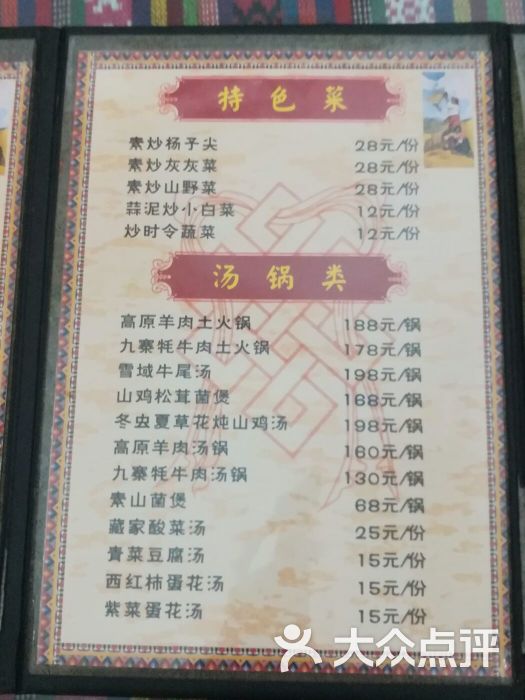 特色菜
素炒杨予尖 28元/份
素炒灰灰菜 28元/份
素炒山野菜 28元/份
蒜泥炒小白菜 12元/份
炒时令蔬菜 12元/份
汤锅类
高原羊肉土火锅 188元/锅
九寨牦牛肉土火锅 178元/锅
雪域牛尾汤 198元/锅
山鸡松茸菌煲 168元/锅
冬虫夏草花炖山鸡汤 198元/锅
高原羊肉汤锅 160元/锅
九寨牦牛肉汤锅 130元/锅
素山菌煲 68元/锅
藏家酸菜汤 25元/份
青菜豆腐汤 15元/份
西红柿蛋花汤 15元/份
紫菜蛋花汤 15元/份
大众点评